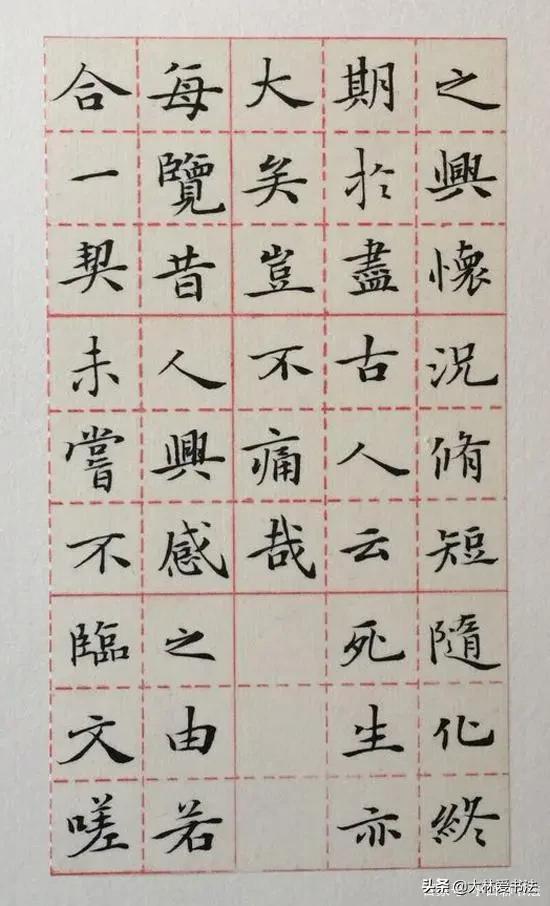 之興懷況脩短隨化終
期於盡古人云死生亦
大矣豈不痛哉
每覽昔人興感之由若
合一契未嘗不臨文嗟
头条 @大林爱书法